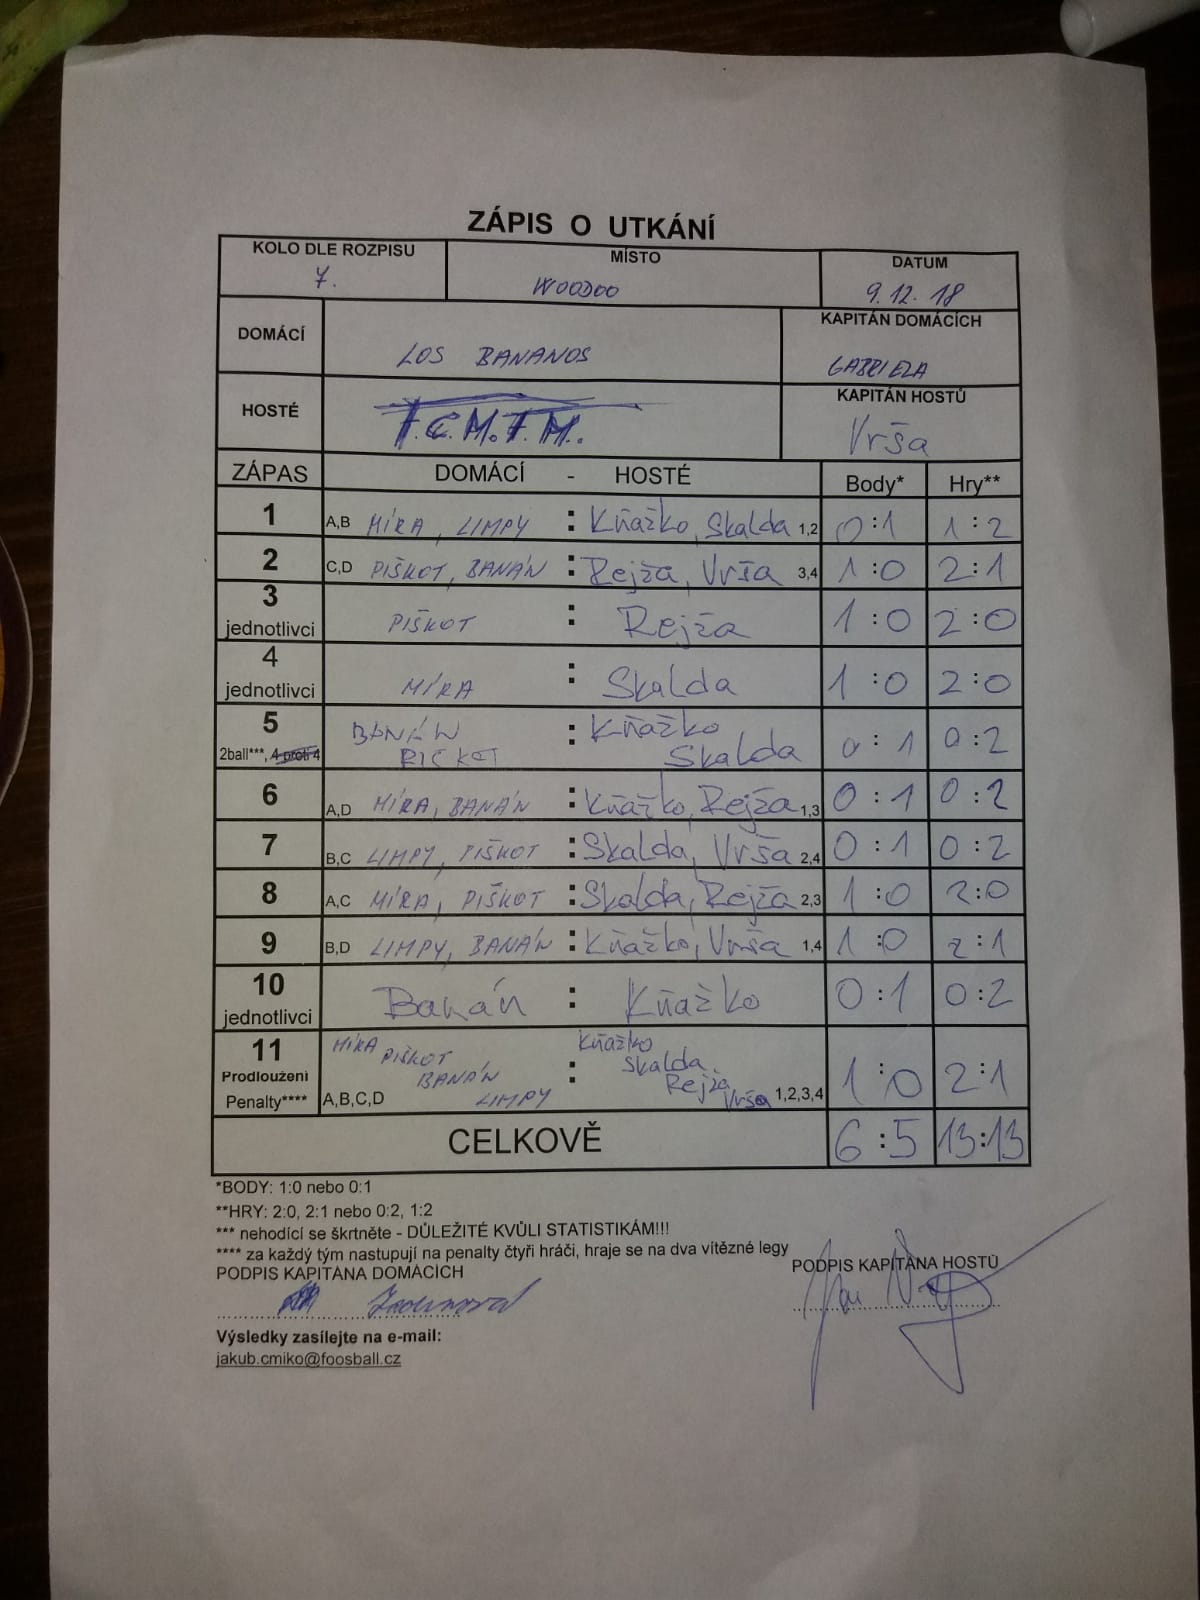 ZÁPIS O UTKÁNÍ
KOLO DLE ROZPISU MÍSTO DATUM
7. WOODOO 9.12.18
DOMÁCÍ LOS BANANOS KAPITÁN DOMÁCÍCH
GABRIELA
HOSTÉ F.C.M.F.M. KAPITÁN HOSTŮ
Vrša
ZÁPAS DOMÁCÍ - HOSTÉ Body* Hry**
1 A,B MÍRA, LIMPY : Kňažko, Skalda 1,2 0:1 1:2
2 C,D PIŠKOT, BANÁN : Rejža, Vrša 3,4 1:0 2:1
3 jednotlivci PIŠKOT : Rejža 1:0 2:0
4 jednotlivci MÍRA : Skalda 1:0 2:0
5 BANÁN : Kňažko 0:1 0:2
2ball***, 4 proti 4 PIČKOT Skalda
6 A,D MÍRA, BANÁN : Kňažko, Rejža 1,3 0:1 0:2
7 B,C LIMPY, PIŠKOT : Skalda, Vrša 2,4 0:1 0:2
8 A,C MÍRA, PIŠKOT : Skalda, Rejža 2,3 1:0 2:0
9 B,D LIMPY, BANÁN : Kňažko, Vrša 1,4 1:0 2:1
10 jednotlivci Banán : Kňažko 0:1 0:2
11 MÍRA Kňažko
Prodloužení PIŠKOT : Skalda 1:0 2:1
BANÁN Rejža
Penalty**** A,B,C,D LIMPY Vrša 1,2,3,4
CELKOVĚ 6:5 13:13
*BODY: 1:0 nebo 0:1
**HRY: 2:0, 2:1 nebo 0:2, 1:2
*** nehodící se škrtněte - DŮLEŽITÉ KVŮLI STATISTIKÁM!!!
**** za každý tým nastupují na penalty čtyři hráči, hraje se na dva vítězné legy
PODPIS KAPITÁNA DOMÁCÍCH PODPIS KAPITÁNA HOSTŮ
Výsledky zasílejte na e-mail:
jakub.cmiko@foosball.cz